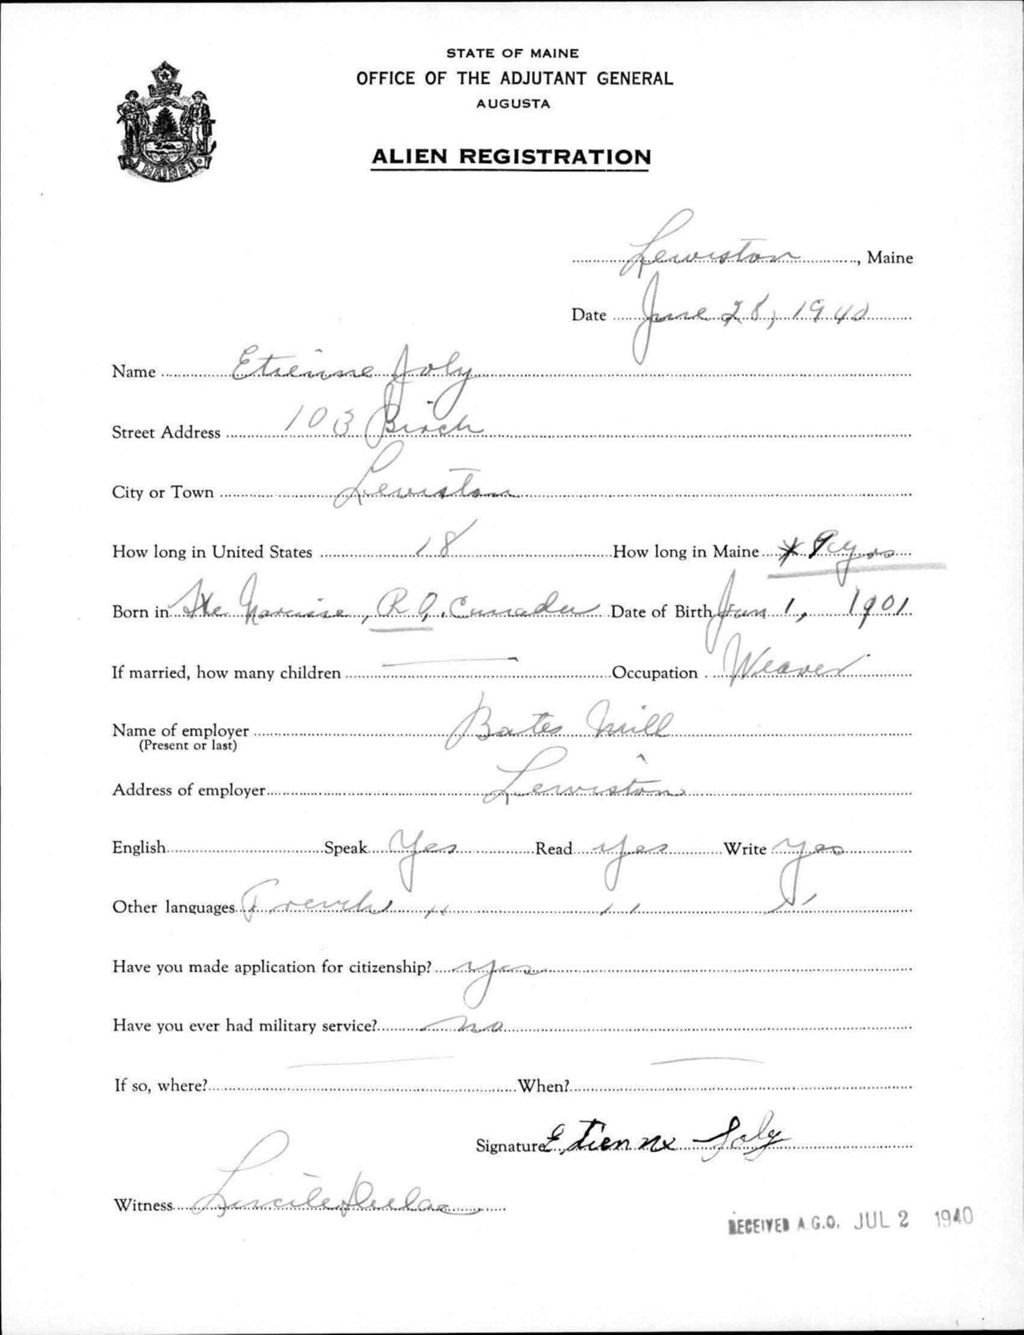 STATE OF MAINE
OFFICE OF THE ADJUTANT GENERAL
AUGUSTA
ALIEN REGISTRATION
MAINE
Lewiston, Maine
Date June 28, 1940
Name Etienne Joly
Street Address 103 Birch
City or Town Lewiston
How long in United States 18 How long in Maine * 9 yrs
Born in Ste Narcisse, P.Q. Canada Date of Birth Jan 1, 1901
If married, how many children — Occupation Weaver
Name of employer Bates Mill
(Present or last)
Address of employer Lewiston
English Speak Yes Read yes Write yes
Other languages French " " "
Have you made application for citizenship? yes
Have you ever had military service? no
If so, where? — When? —
Signature Etienne Joly
Witness Lucile
RECEIVED A.G.O. JUL 2 1940